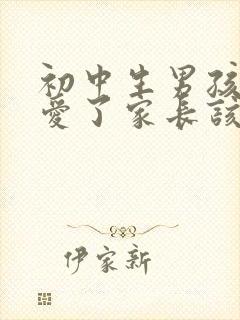 初中生男孩
爱了家长该
伊家新